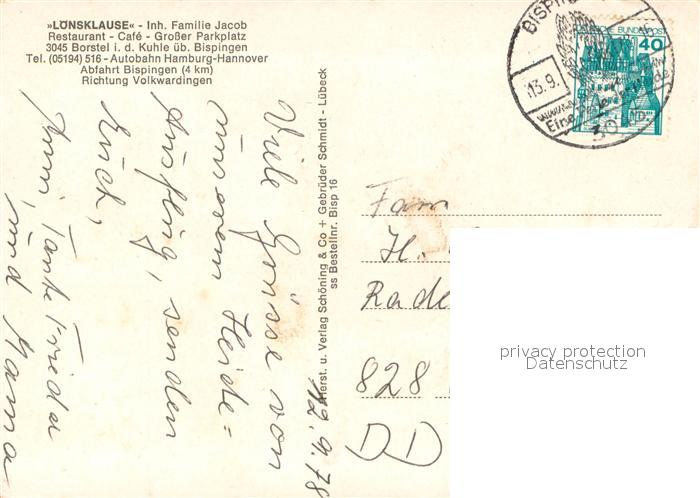 »LÖNSKLAUSE« - Inh. Familie Jacob
Restaurant - Café - Großer Parkplatz
3045 Borstel i. d. Kuhle üb. Bispingen
Tel. (05194) 516 - Autobahn Hamburg-Hannover
Abfahrt Bispingen (4 km)
Richtung Volkwardingen
Viele Grüsse von
unserem Heide=
Ausflug, senden
Euch,
Tante Frieda
und Mama
12.9.78
Herst. u. Verlag Schöning & Co + Gebrüder Schmidt - Lübeck
ss Bestellnr. Bisp 16
DEUTSCHE BUNDESPOST
40
13.9.
Fam
H.
Rade
828
DD
privacy protection
Datenschutz